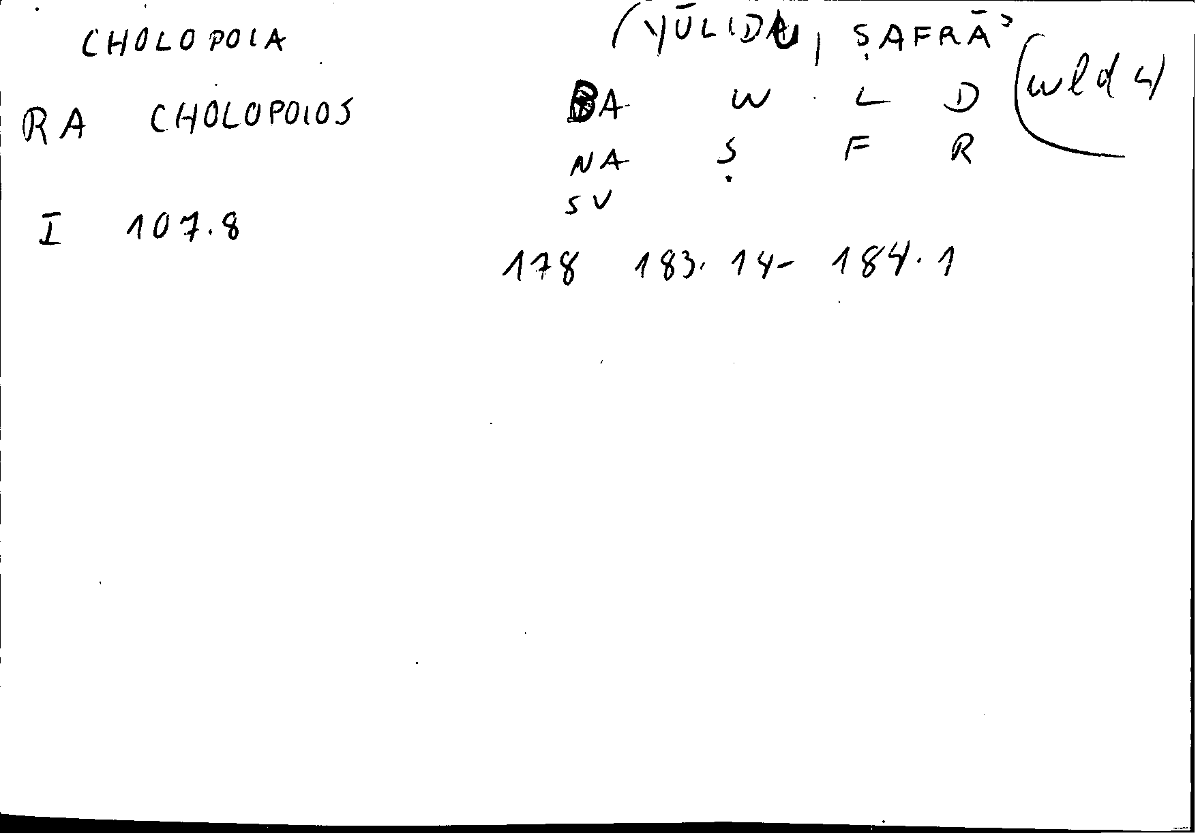 CHOLOPOIA
RA CHOLOPOIOS
I 107.8
(YŪLIDU, ṢAFRĀʾ
BA W L D (wld 4)
NA Ṣ F R
SV
178 183.14-184.1